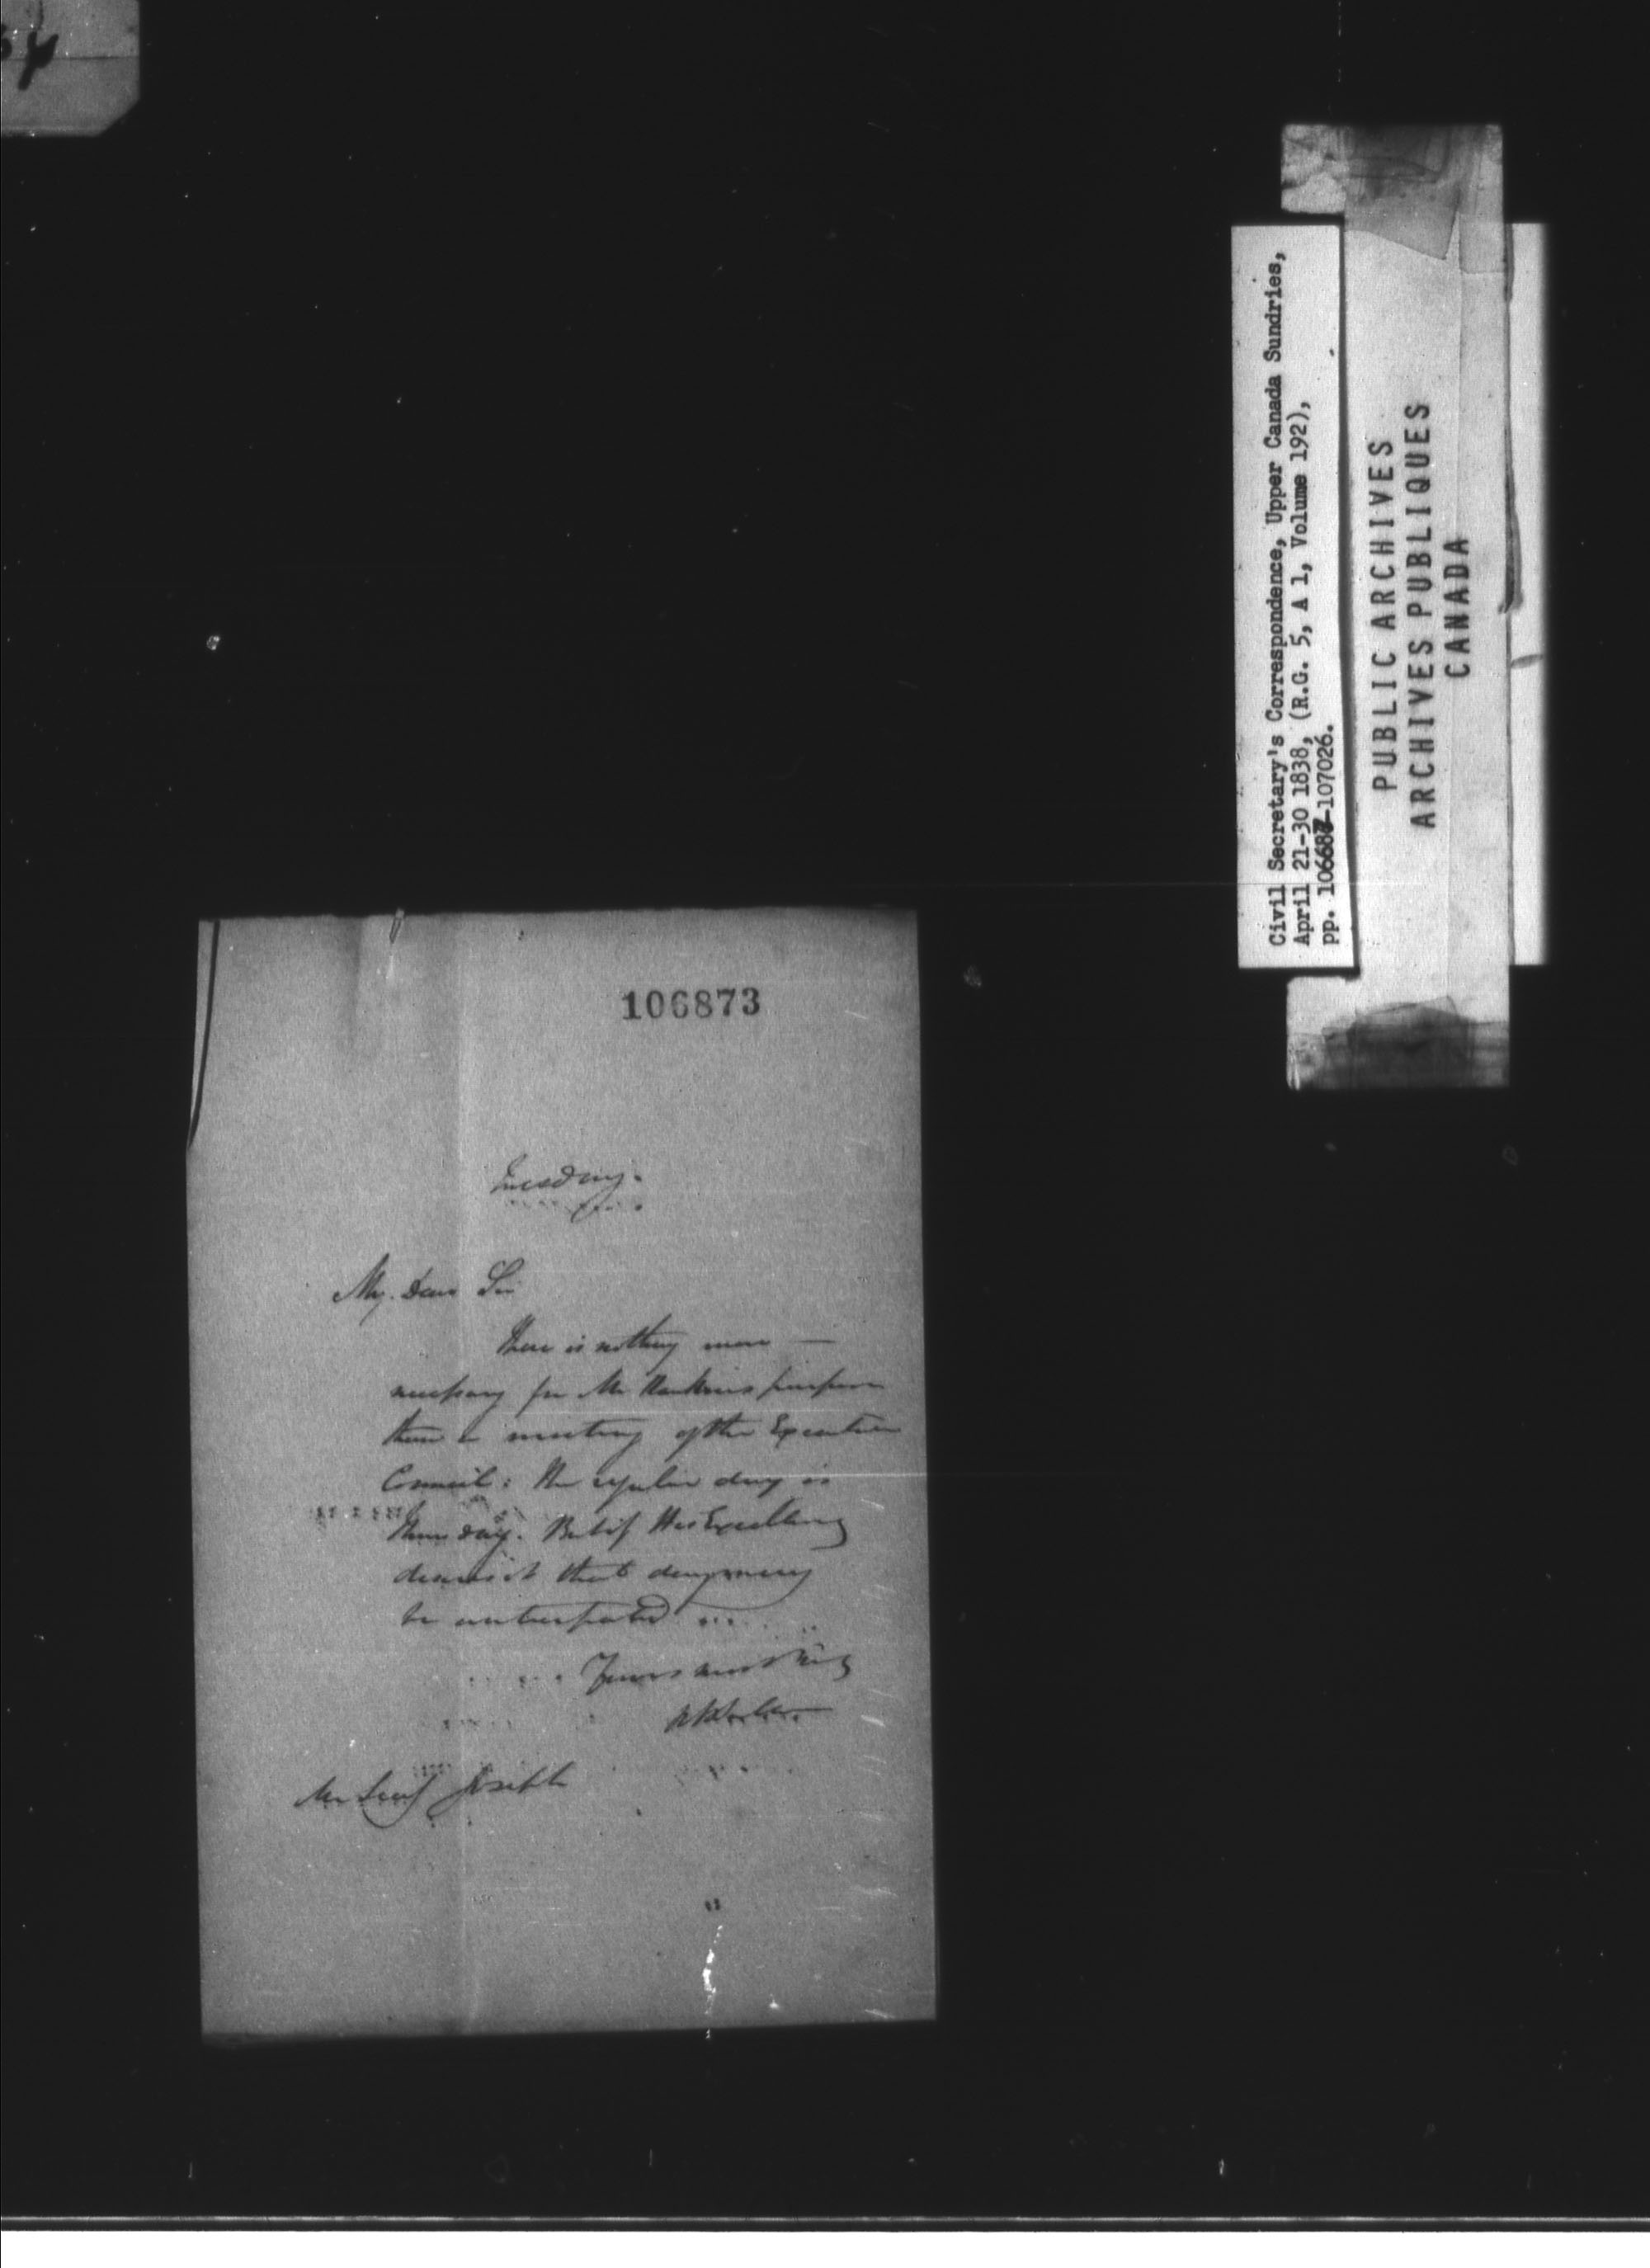 106873
Tuesday.
My Dear Sir
There is nothing more —
necessary for Mr Hawkins purpose
than a meeting of the Executive
Council: the regular day is
Thursday. But if His Excellency
desires it that day may
be anticipated
Yours most truly
Mr Secy Joseph
Civil Secretary's Correspondence, Upper Canada Sundries,
April 21-30 1838, (R.G. 5, A 1, Volume 192),
pp. 106687-107026.
PUBLIC ARCHIVES
ARCHIVES PUBLIQUES
CANADA